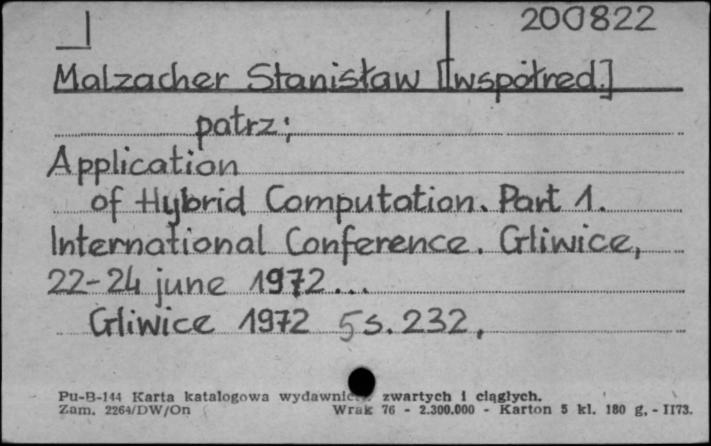 200822
Malzacher Stanisław [współred.]
patrz;
Application
of Hybrid Computation. Part 1.
International Conference. Gliwice,
22-24 june 1972...
Gliwice 1972 5s. 232,
Pu-B-144 Karta katalogowa zwartych i ciągłych.
Zam. 2264/DW/On Wrak 76 - 2.300.000 - Karton 5 kl. 180 g, - II73.